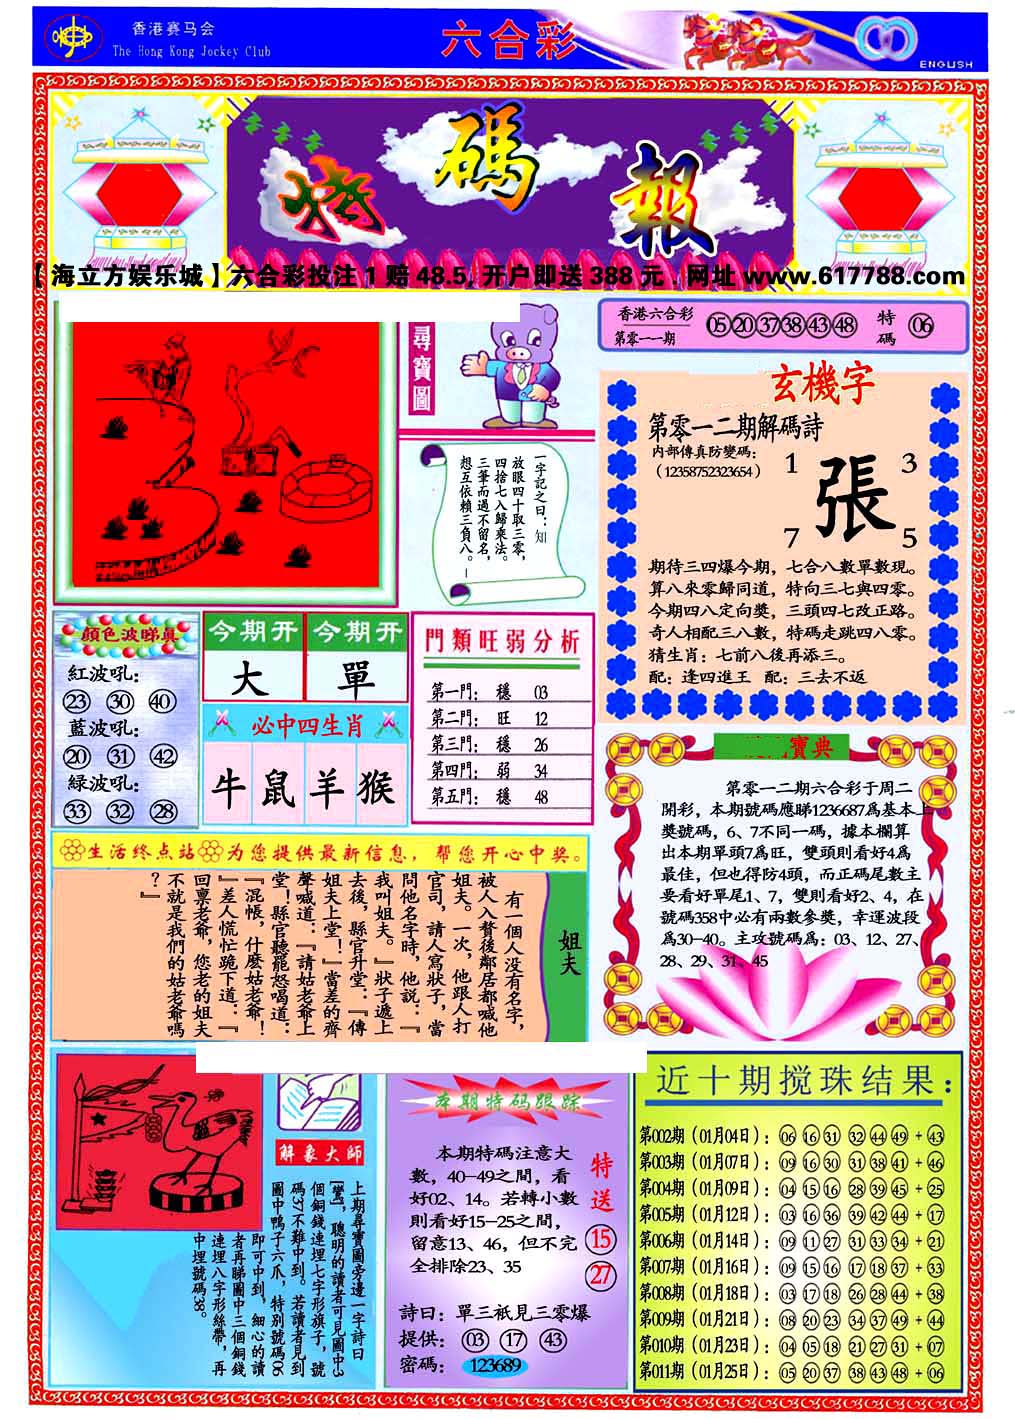 香港赛马会
The Hong Kong Jockey Club
六合彩
ENGLISH
特碼報
【海立方娱乐城】六合彩投注1赔48.5,开户即送388元.网址www.617788.com
尋寶圖
一字記之曰：知
放眼四十取三零，
四捨七入歸乘法。
三筆而過不留名，
想互依賴三負八。
香港六合彩
第零一一期
05 20 37 38 43 48
特碼
06
玄機字
第零一二期解碼詩
内部傳真防變碼：
（12358752323654）
1 3
張
7 5
期待三四爆今期，七合八數單數現。
算八來零歸同道，特向三七與四零。
今期四八定向獎，三頭四七改正路。
奇人相配三八數，特碼走跳四八零。
猜生肖：七前八後再添三。
配：逢四進王 配：三去不返
顏色波睇真
紅波吼：
23 30 40
藍波吼：
20 31 42
綠波吼：
33 32 28
今期开 今期开
大 單
必中四生肖
牛 鼠 羊 猴
門類旺弱分析
第一門： 穩 03
第二門： 旺 12
第三門： 穩 26
第四門： 弱 34
第五門： 穩 48
寶典
第零一二期六合彩于周二
開彩，本期號碼應睇1236687爲基本上
獎號碼，6、7不同一碼，據本欄算
出本期單頭7爲旺，雙頭則看好4爲
最佳，但也得防4頭，而正碼尾數主
要看好單尾1、7，雙則看好2、4，在
號碼358中必有兩數参獎，幸運波段
爲30-40。主攻號碼爲：03、12、27、
28、29、31、45
生活终点站 为您提供最新信息，帮您开心中奖。
姐夫
有一個人没有名字，
被人入贅後鄰居都喊他
姐夫。一次，他跟人打
官司，請人寫狀子，當
問他名字時，他説：『
我叫姐夫。』狀子遞上
去後，縣官升堂：『傳
姐夫上堂！』當差的齊
聲喊道：『請姑老爺上
堂！縣官聽罷怒喝道：
『混帳，什麼姑老爺！
』差人慌忙跪下道：『
回禀老爺，您老的姐夫
不就是我們的姑老爺嗎
？』
解象大師
上期尋寶圖旁邊一字詩曰
[鸞]，聰明的讀者可見圖中3
個銅錢連埋七字形旗子，號
碼37不難中到。若讀者見到
圖中鴨子六爪，特别號碼06
即可中到，細心的讀
者再睇圖中三個銅錢
連埋八字形絲帶，再
中埋號碼38。
本期特码跟踪
本期特碼注意大
數，40-49之間，看
好02、14。若轉小數
則看好15-25之間，
留意13、46，但不完
全排除23、35
特送
15
27
詩曰：單三衹見三零爆
提供：03 17 43
密碼：123689
近十期搅珠结果：
第002期（01月04日）：06 16 31 32 44 49 + 43
第003期（01月07日）：09 16 30 31 38 41 + 46
第004期（01月09日）：04 15 16 28 39 45 + 25
第005期（01月12日）：03 16 36 39 42 44 + 17
第006期（01月14日）：09 11 27 31 33 34 + 21
第007期（01月16日）：09 15 16 17 18 37 + 33
第008期（01月18日）：03 17 18 26 28 44 + 38
第009期（01月21日）：08 20 23 34 37 49 + 44
第010期（01月23日）：04 05 18 21 27 31 + 07
第011期（01月25日）：05 20 37 38 43 48 + 06